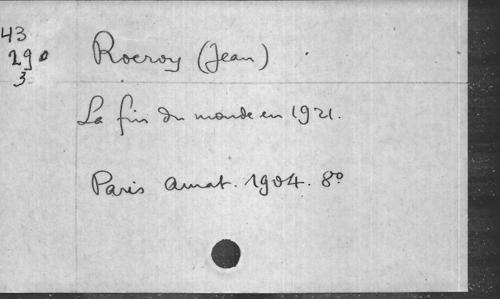 43
29
3
Rocroy (Jean)
La fin du monde en 1921.
Paris Amat. 1904. 8º